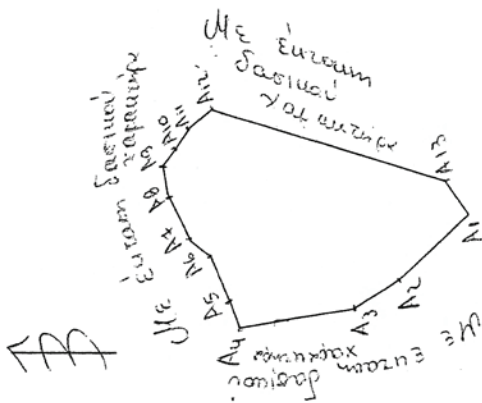 Με έκταση
δασικού
χαρακτήρ
Με έκταση
δασικού
χαρακτήρα
Με έκταση
δασικού
χαρακτήρα
A1
A2
A3
A4
A5
A6
A7
A8
A9
A10
A11
A12
A13
Β